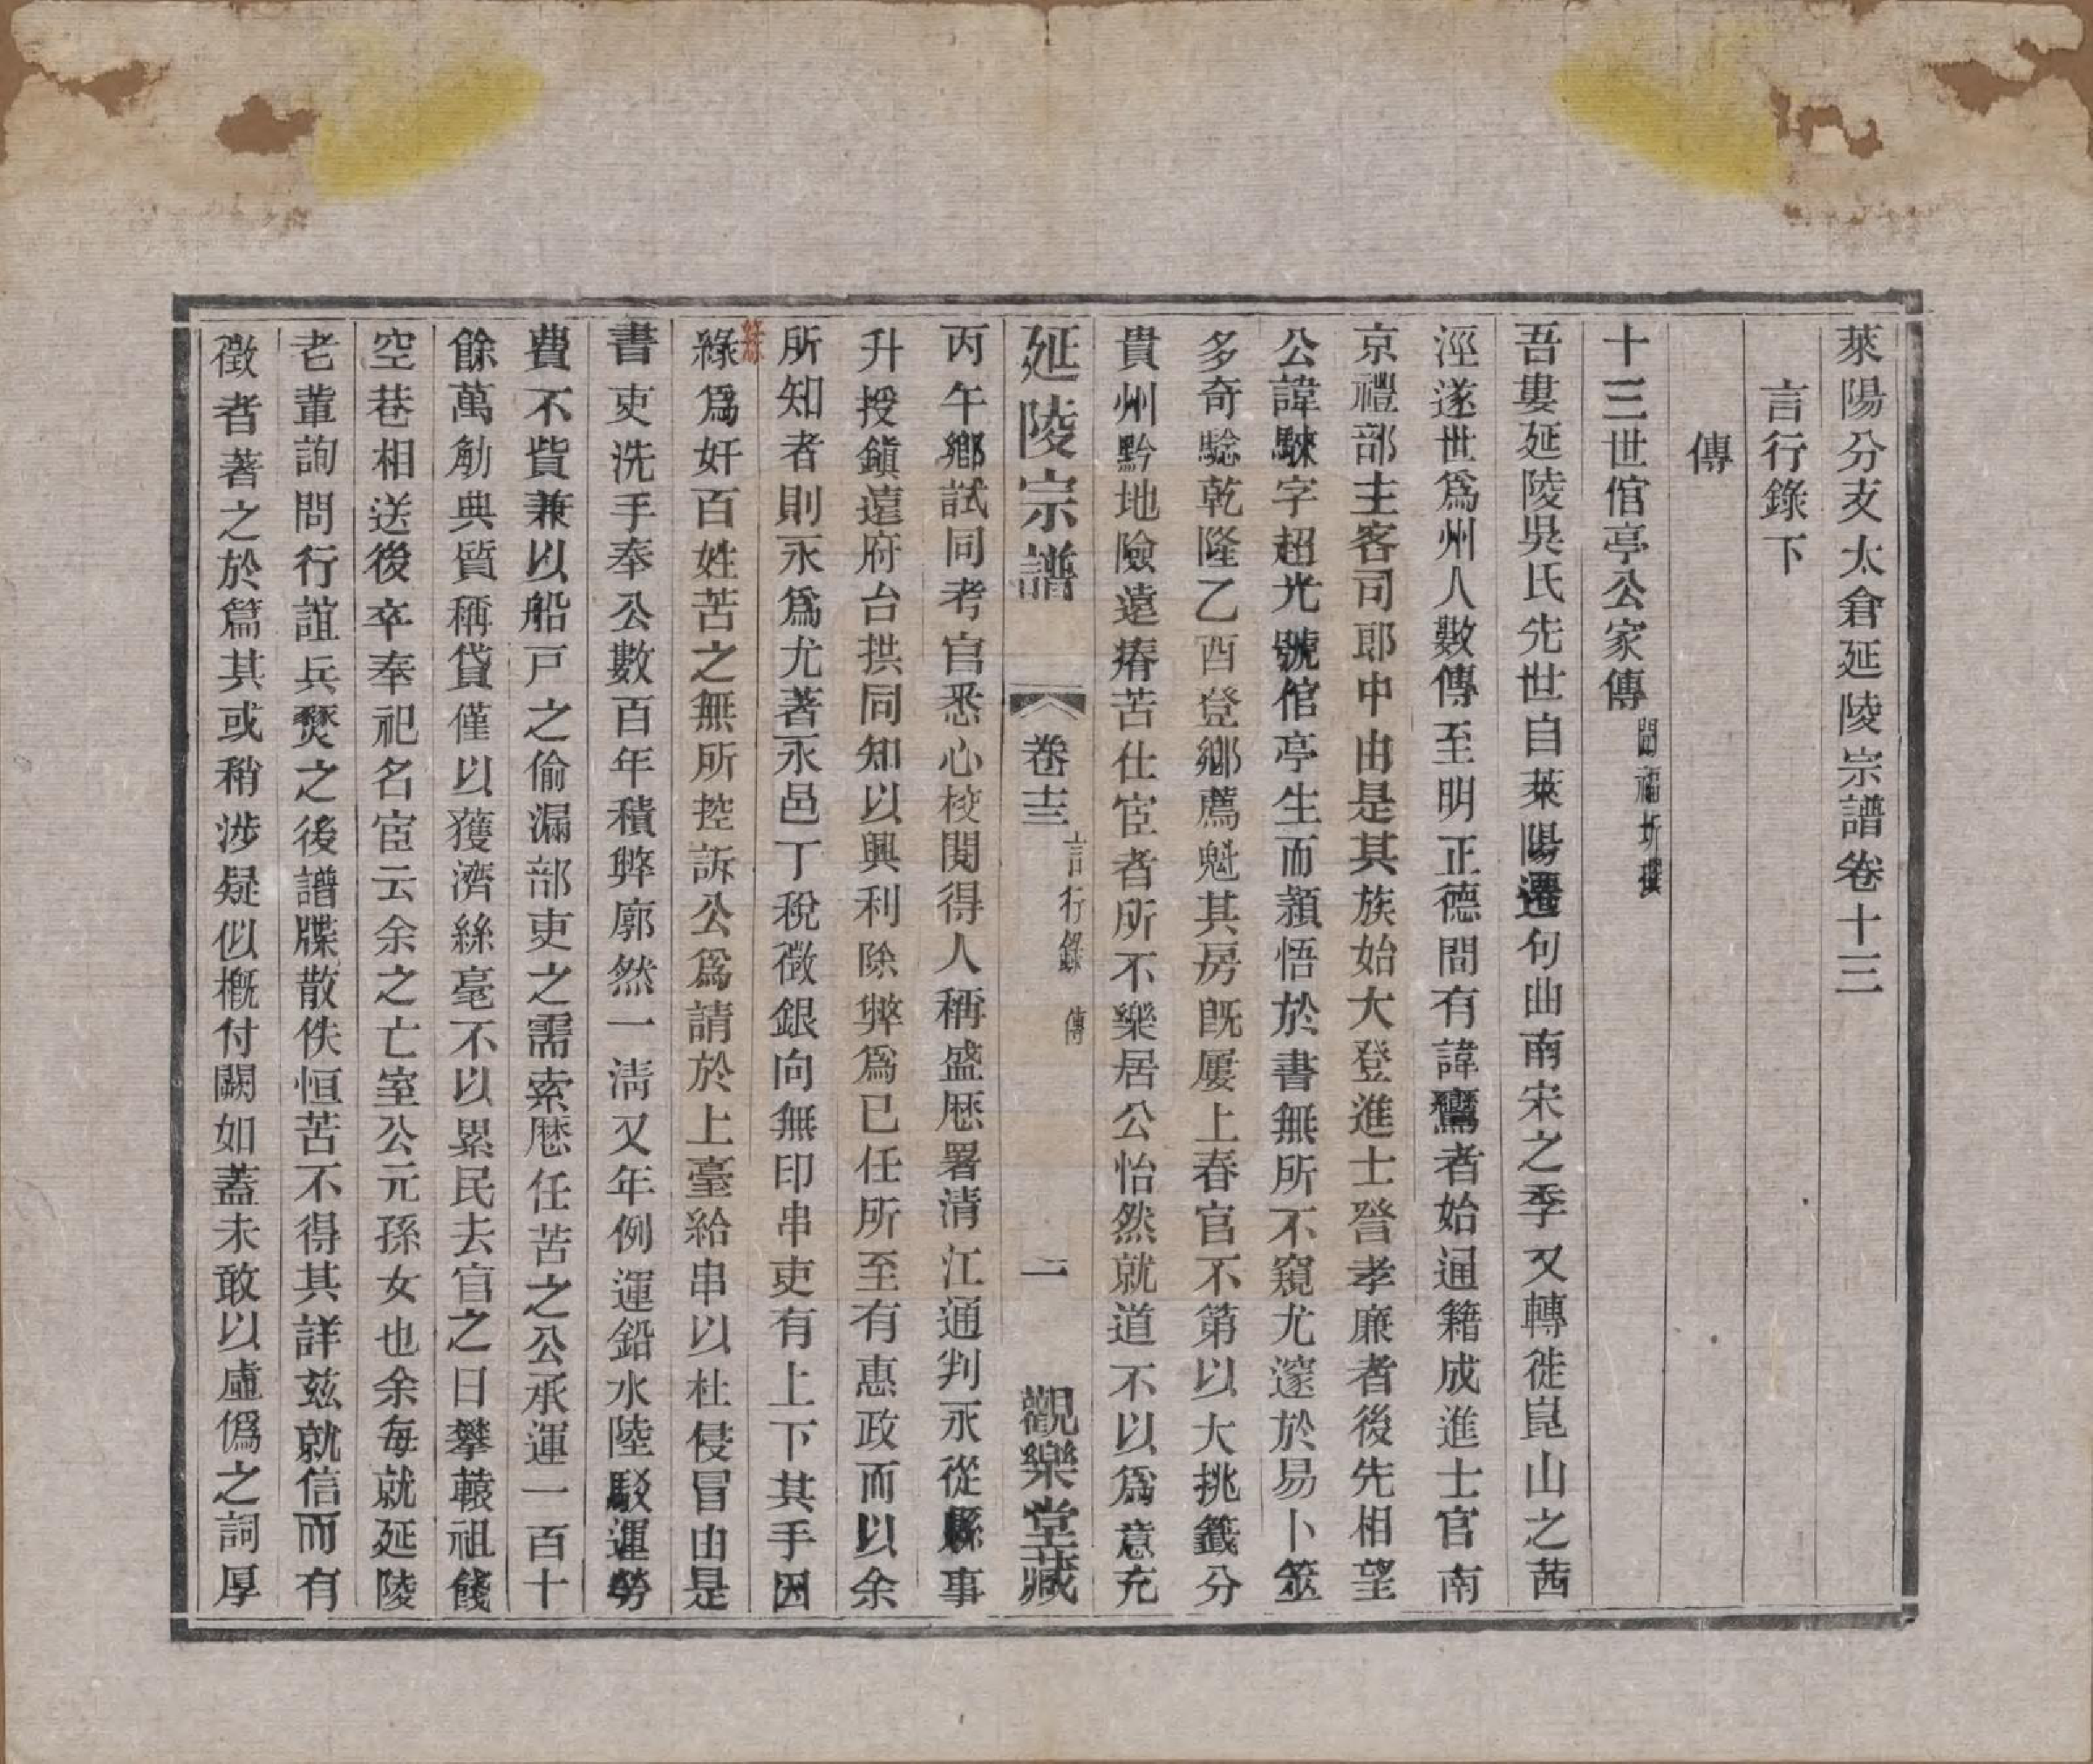 萊陽分支太倉延陵宗譜卷十三
言行錄下
傳
十三世倌亭公家傳 聞福圻撰
吾婁延陵吳氏先世自萊陽遷句曲南宋之季又轉徙崑山之茜
涇遂世爲州人數傳至明正德間有諱鸞者始通籍成進士官南
京禮部主客司郎中由是其族始大登進士晉孝廉者後先相望
公諱騋字超光號倌亭生而頴悟於書無所不窺尤邃於易卜筮
多奇騐乾隆乙酉登鄉薦魁其房旣屢上春官不第以大挑籤分
貴州黔地險遠瘠苦仕宦者所不樂居公怡然就道不以爲意充
延陵宗譜 卷十三 言行錄 傳 一 觀樂堂藏
丙午鄉試同考官悉心校閱得人稱盛厯署清江通判永從縣事
升授鎭遠府台拱同知以興利除弊爲已任所至有惠政而以余
所知者則永爲尤著永邑丁稅徵銀向無印串吏有上下其手因
緣爲奸百姓苦之無所控訴公爲請於上臺給串以杜侵冒由是
書吏洗手奉公數百年積弊廓然一淸又年例運鉛水陸駁運勞
費不貲兼以船戸之偷漏部吏之需索厯任苦之公承運一百十
餘萬觔典質稱貸僅以獲濟絲毫不以累民去官之日攀轅祖餞
空巷相送後卒奉祀名宦云余之亡室公元孫女也余每就延陵
老輩詢問行誼兵燹之後譜牒散佚恒苦不得其詳茲就信而有
徵者著之於篇其或稍涉疑似槪付闕如蓋未敢以虛僞之詞厚